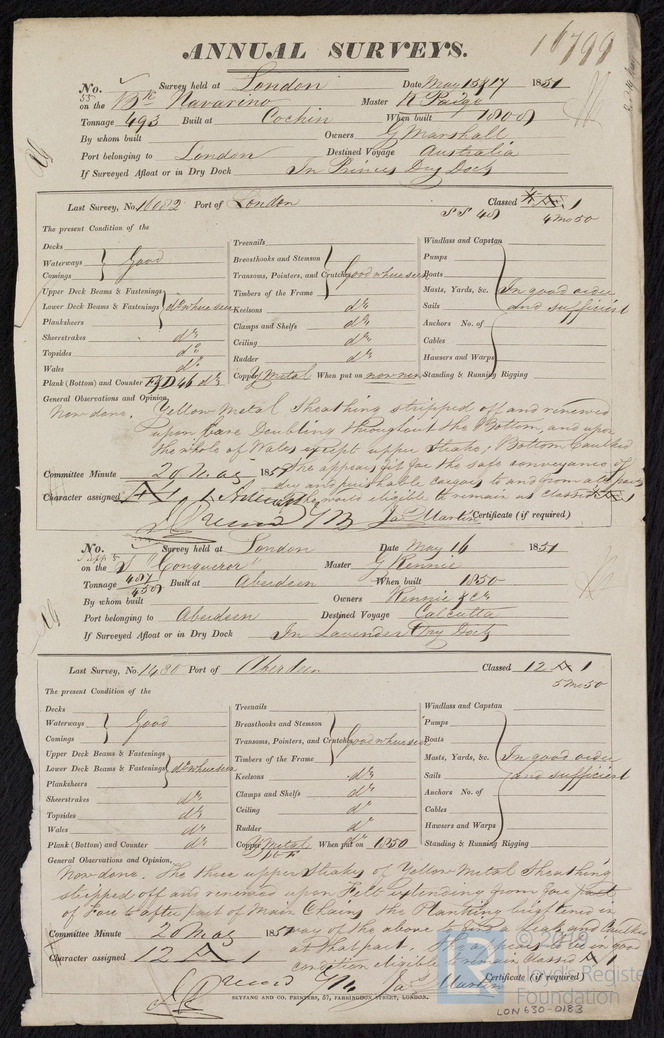 ANNUAL SURVEYS.
16799
No. 55 Survey held at London Date May 15 & 17 1851
on the Bk Navarino Master R Paige
Tonnage 493 Built at Cochin When built 1808
By whom built Owners G Marshall
Port belonging to London Destined Voyage Australia
If Surveyed Afloat or in Dry Dock In Princes Dry Dock
Last Survey, No. 16082 Port of London Classed Æ 1
SS 48 4 Mo 50
The present Condition of the
Decks
Waterways
Comings
Good
Upper Deck Beams & Fastenings
Lower Deck Beams & Fastenings
Planksheers
do where seen
Sheerstrakes do
Topsides do
Wales do
Plank (Bottom) and Counter FD 46 do
Treenails
Breasthooks and Stemson
Transoms, Pointers, and Crutches
Timbers of the Frame
Good where seen
Keelsons do
Clamps and Shelfs do
Ceiling do
Rudder do
Copper Y Metal When put on now new
Windlass and Capstan
Pumps
Boats
Masts, Yards, &c.
Sails
Anchors No. of
Cables
Hawsers and Warps
Standing & Running Rigging
In good order
and sufficient
General Observations and Opinion,
Now done. Yellow Metal Sheathing stripped off and renewed
upon bare Doubling throughout the Bottom, and upon
the whole of Wales except upper Strake; Bottom Caulked
She appears fit for the safe conveyance of
dry and perishable cargoes to and from all parts
eligible to remain as classed Æ 1
Committee Minute 20 May 1851
Character assigned Æ 1
Jas Martin Certificate (if required)
No. Survey held at London Date May 16 1851
on the S "Conqueror" Master G Rennie
Tonnage 487/450 Built at Aberdeen When built 1850
By whom built Owners Rennie & Co
Port belonging to Aberdeen Destined Voyage Calcutta
If Surveyed Afloat or in Dry Dock In Lavender Dry Dock
Last Survey, No. 1480 Port of Aberdeen Classed 12 A 1
5 Mo 50
The present Condition of the
Decks
Waterways
Comings
Good
Upper Deck Beams & Fastenings
Lower Deck Beams & Fastenings
Planksheers
do where seen
Sheerstrakes do
Topsides do
Wales do
Plank (Bottom) and Counter do
Treenails
Breasthooks and Stemson
Transoms, Pointers, and Crutches
Timbers of the Frame
Good where seen
Keelsons do
Clamps and Shelfs do
Ceiling do
Rudder do
Copper Y Metal When put on 1850
Windlass and Capstan
Pumps
Boats
Masts, Yards, &c.
Sails
Anchors No. of
Cables
Hawsers and Warps
Standing & Running Rigging
In good order
and sufficient
General Observations and Opinion,
Now done. The three upper Strakes of Yellow Metal Sheathing
stripped off and renewed upon Felt extending from fore part
of Fore to after part of Main Chains, the Planking brightened in
way of the above and Caulked
at that part. She appears to be in good
condition eligible to remain Classed A 1
Committee Minute 20 May 1851
Character assigned 12 A 1
Jas Martin Certificate (if required)
SEYFANG AND CO. PRINTERS, 57, FARRINGDON STREET, LONDON.
© 2019
Lloyd's Register
Foundation
LON 630-0183